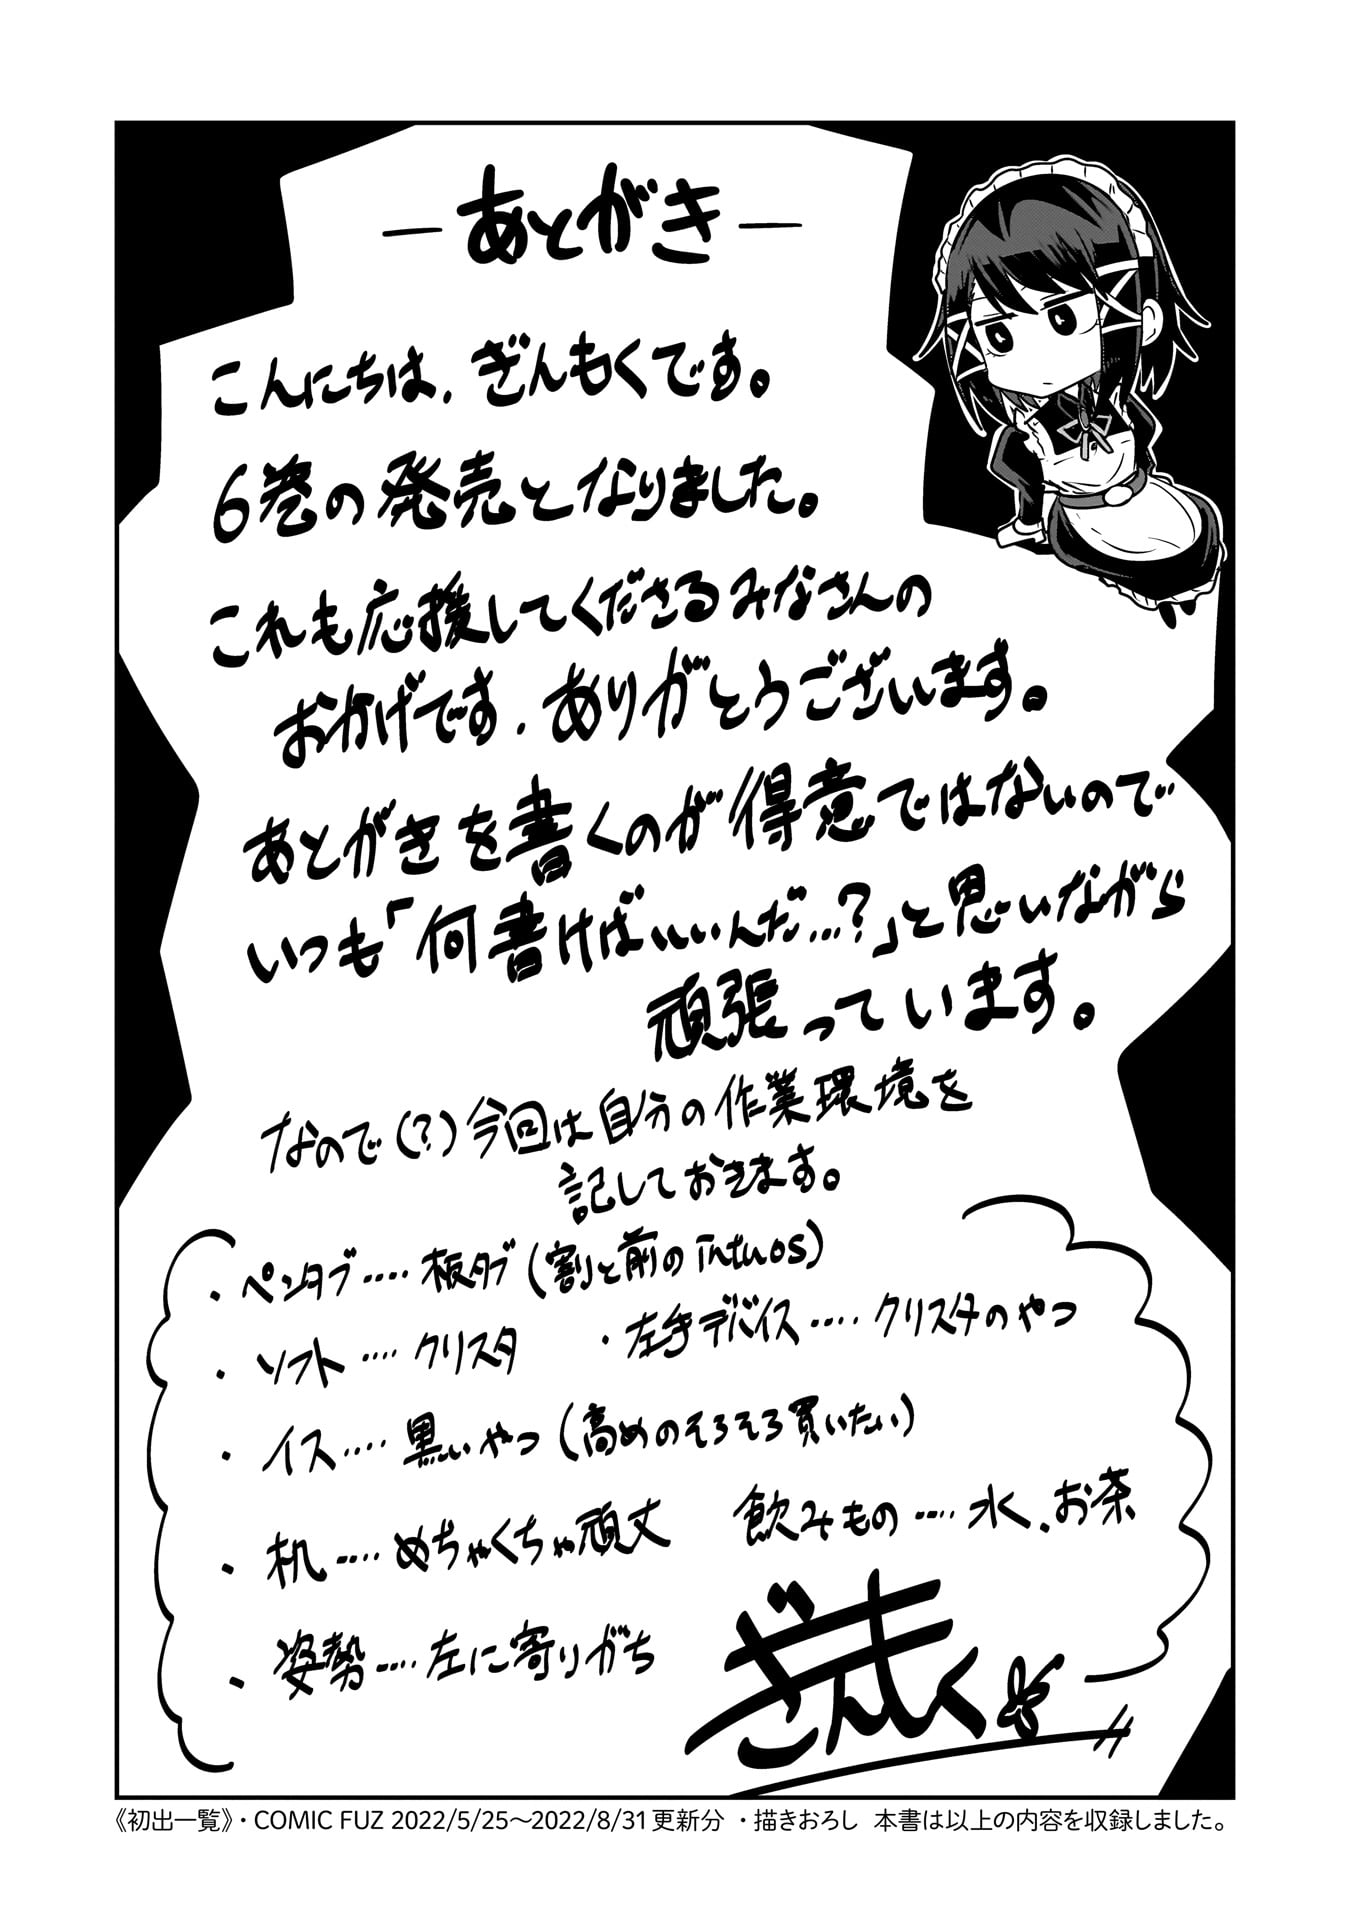 ―あとがき―
こんにちは、ぎんもくです。
6巻の発売となりました。
これも応援してくださるみなさんの
おかげです、ありがとうございます。
あとがきを書くのが得意ではないので
いつも「何書けばいいんだ…?」と思いながら
頑張っています。
なので(?)今回は自分の作業環境を
記しておきます。
・ペンタブ‥‥板タブ(割と前のintuos)
・ソフト‥‥クリスタ ・左手デバイス‥‥クリスタのやつ
・イス‥‥黒いやつ(高めのそろそろ買いたい)
・机‥‥めちゃくちゃ頑丈 飲みもの‥‥水、お茶
・姿勢‥‥左に寄りがち
ぎんもく
《初出一覧》・COMIC FUZ 2022/5/25～2022/8/31更新分 ・描きおろし 本書は以上の内容を収録しました。